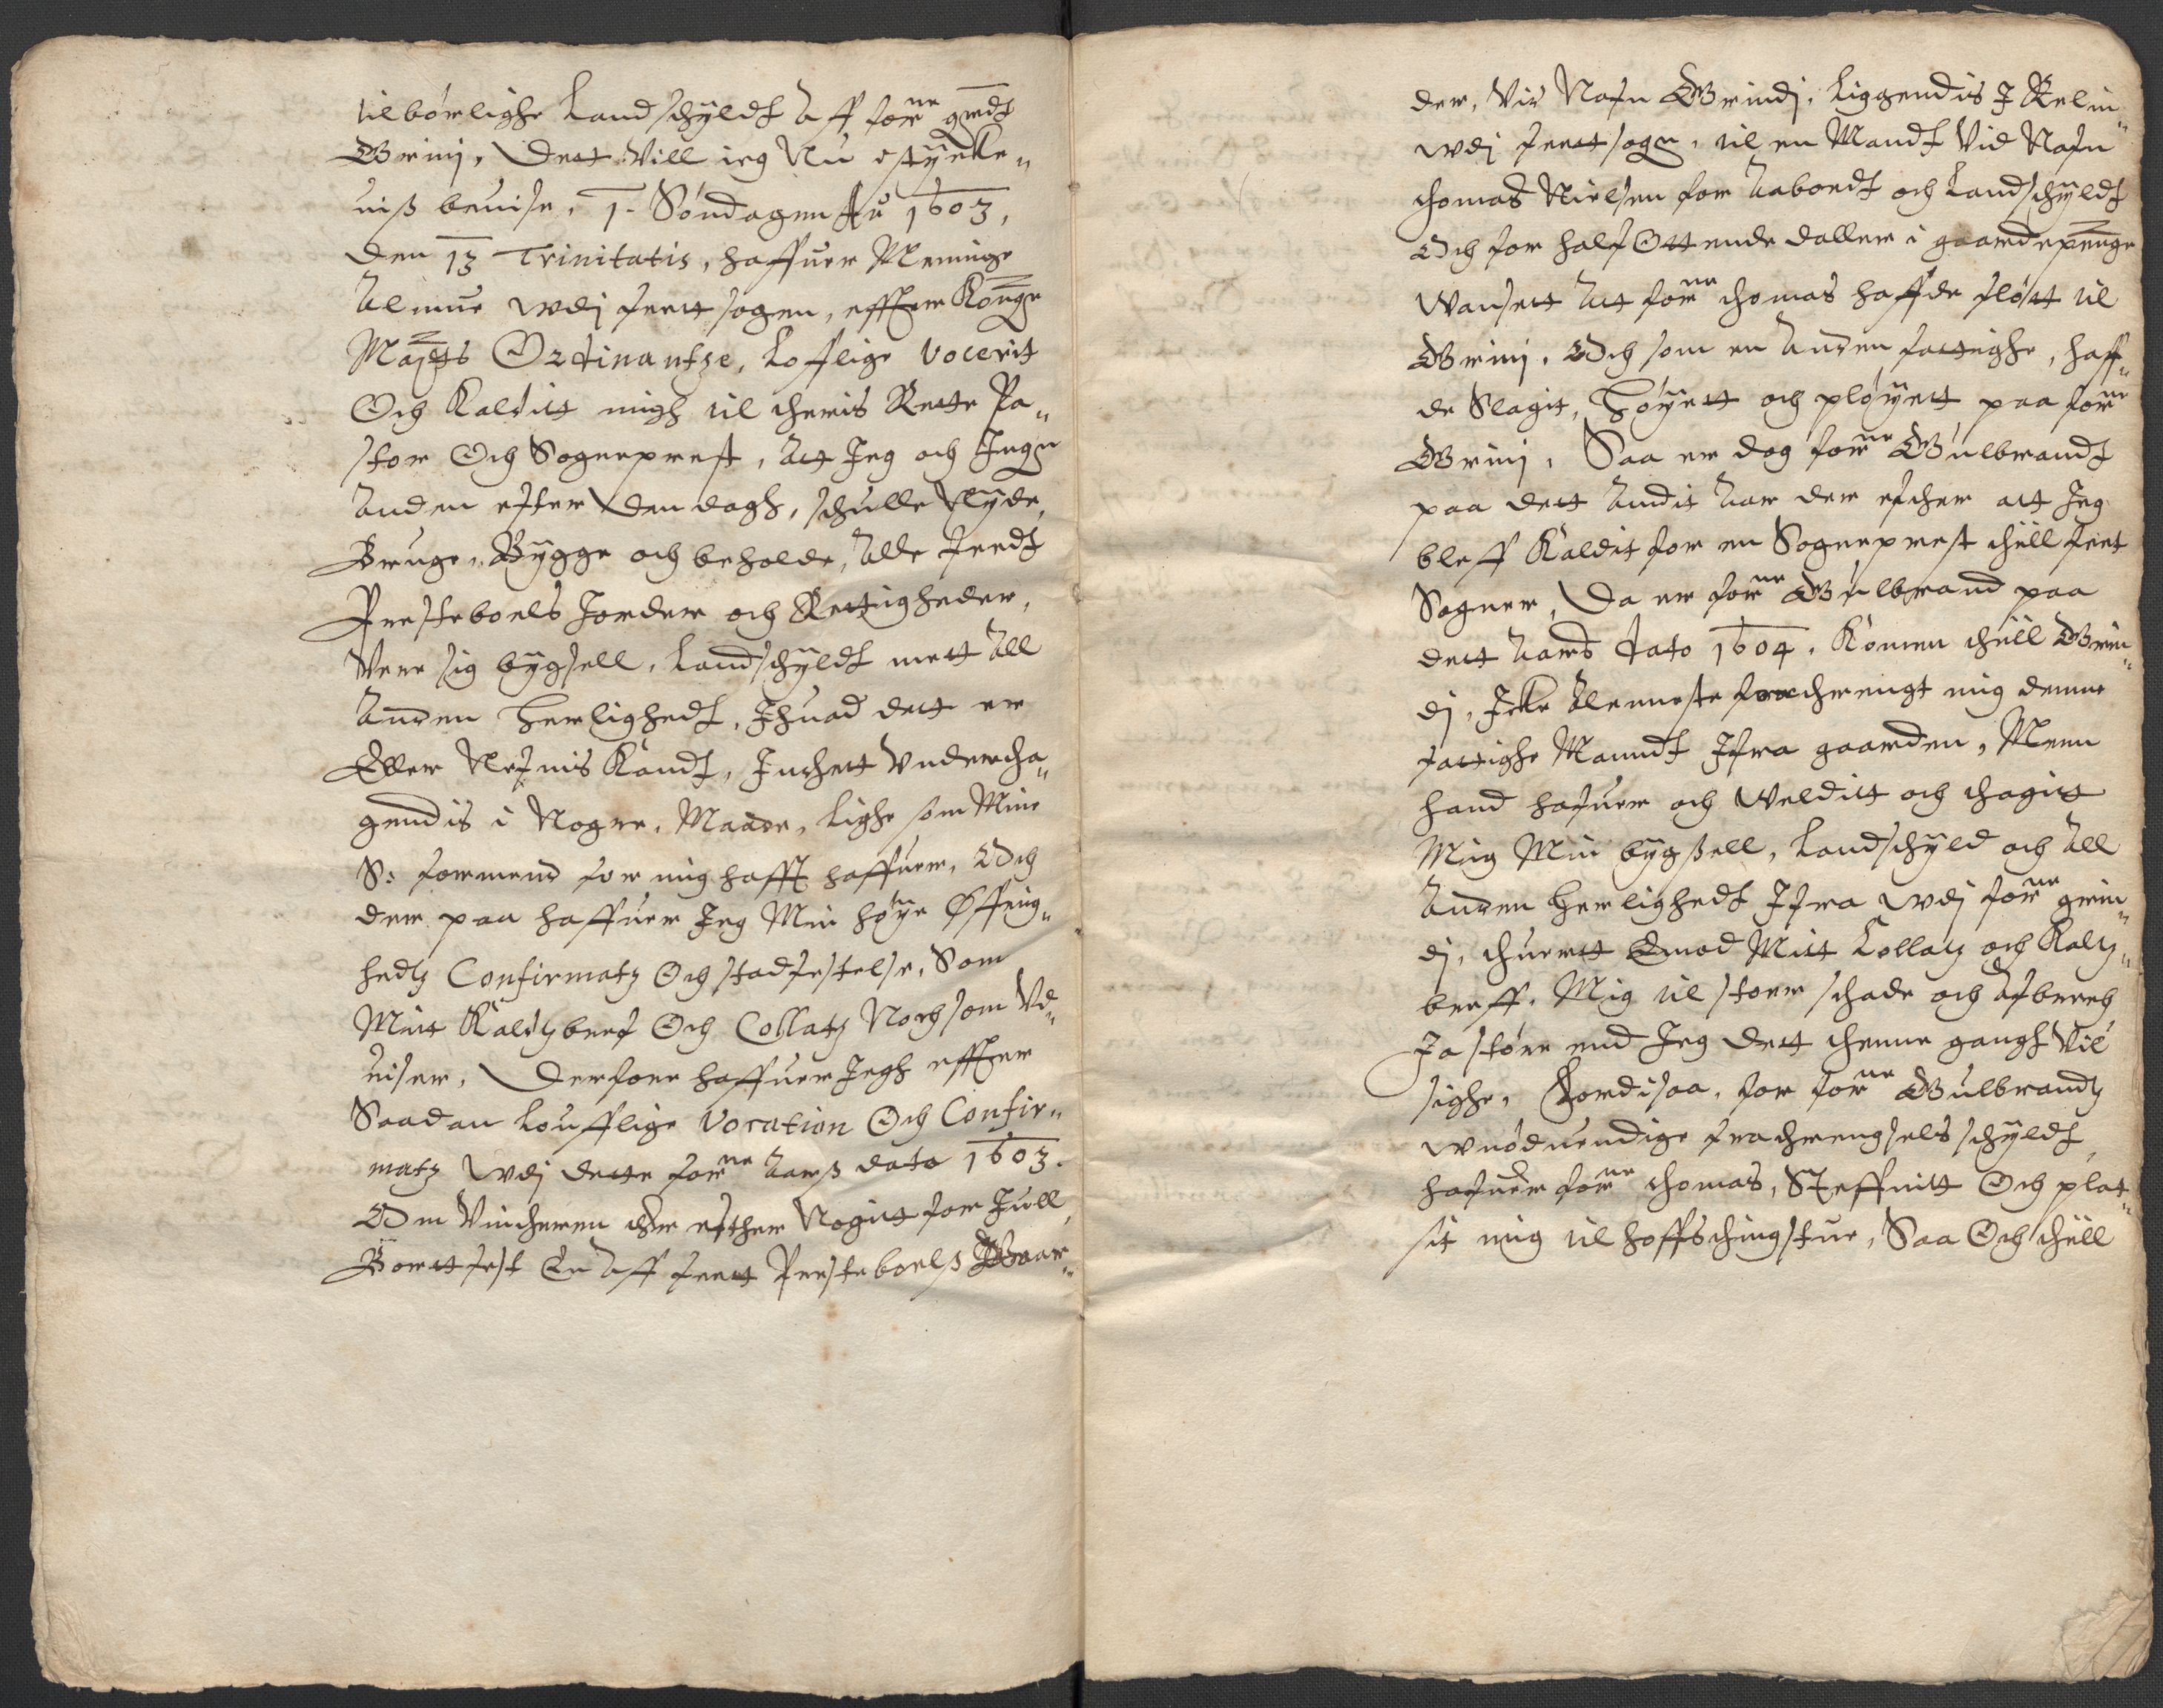 tilbørlighe Landschyldt Aff forne grdt
Grinj, Dett Vill ieg Nu støcke„
uis beuise, 1. Søndagen Au 1603,
den 13 Trinitatis, haffuer Meninge
Almue wdj feett sogen, effther Konge
Maytts Ordinantze, Lofflige Vocerit
Och Kaldett migh til theris Rette Pa„
stor Och Sogneprest, Att Jeg och Ingen
Anden efter den dagh, schulle Nyde,
Bruge, Bygge och beholde, Alle feedt
Presteboels Jorder och Rettigheder,
Vere sig bygsell, Landschyldt mett All
Anden Herlighedt, Ihuad dett er
Eller Nefnis Kandt, Inthett Vndertha„
gendis i Nogre, Maade, lighe som Mine
S: formend for mig hafft haffuer, Och
der paa haffuer Jeg Min høye Øffrig„
hedtz Confirmatz Och stadfestelse, Som
Mitt Kaldtzbref Och Collatz Noch som Vd„
uiser, Derfore haffuer Jegh effther
Saadan Loufflige Vocation Och Confir„
matz wdj dette forne Aars dato 1603.
Om Vintheren der efther Nogitt for Jull,
Bortfest En Aff feett Presteboels Gaar„
der, Vid Nafn Grindj, Liggendis I Relin„
wdj feett sogn, til en Mandt Vid Nafn
thomas Nielsen for Aaboedt och Landschyldt
Och for half Ottende daller i gaardepenge
Wansett Att forne thomas haffde fløtt til
Grinj, Och som en Anden fattighe, haff„
de Slagit, Høyett och pløyett paa forne
Grinj, Saa er dog forne Gulbrandt
paa dett Andit Aar der efther att Jeg
bleff Kaldit for en Sogneprest thill feet
Sogner, Da er forne Gulbrand paa
dett Aars dato 1604. Komen thill Grin„
dj, Icke Aleneste forthrengt mig denne
fattighe Manndt Ifra gaarden, Menn
hand hafuer och Welditt och thagitt
Mig Min bygsell, Landschyld och All
Anden Herlighedt Ifra wdj forne grin„
dj, thuertt Emod Mitt Collatz och Kaltz„
breff, Mig til stoer schade och Afbreck
Ja støre end Jeg dett thenne gangh Vil
sighe, Fordisaa, for forne Gulbrandtz
wnøduendige frathrengsels schyldt,
hafuer forne thomas, Steffnitt Och plat„
sit mig til hoffsthingstue, Saa Och thill